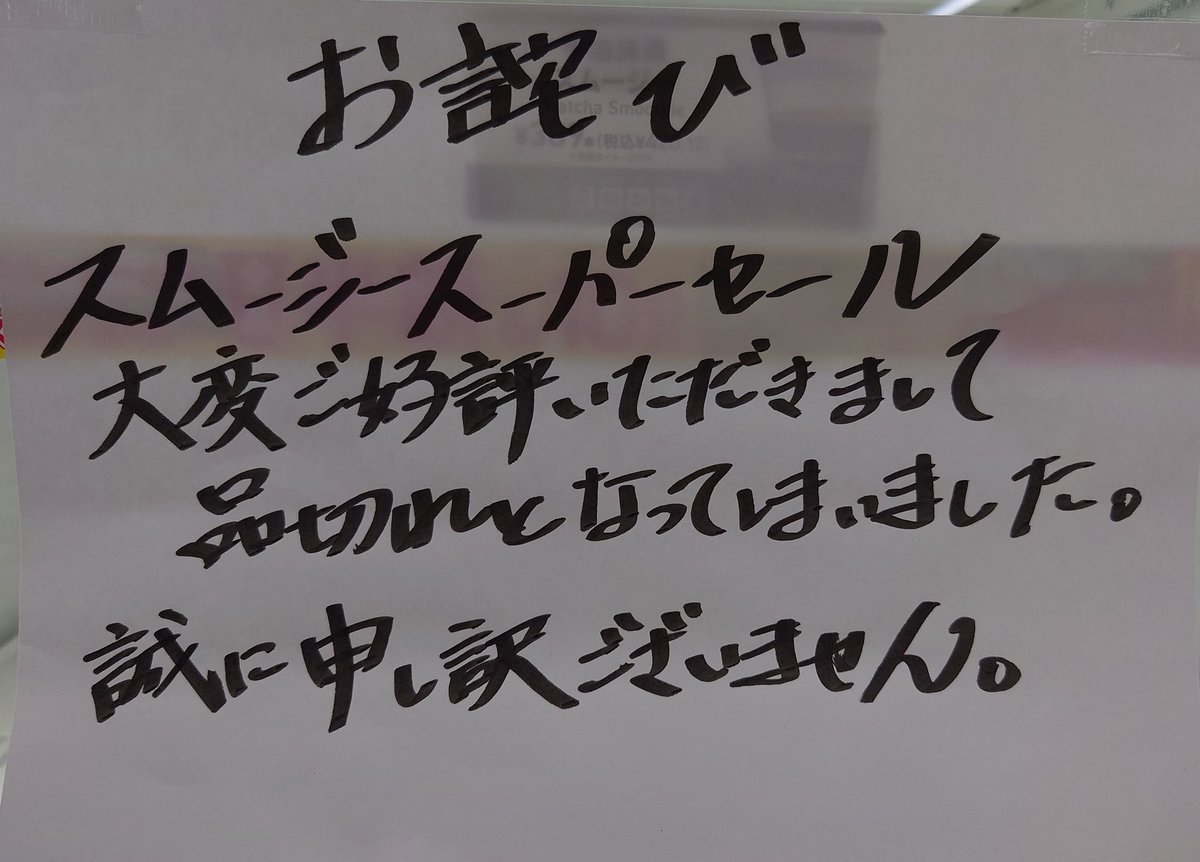 お詫び
atcha Smoo
(税込¥4
スムージースーパーセール
大変ご好評いただきまして
品切れとなってしまいました。
誠に申し訳ございません。